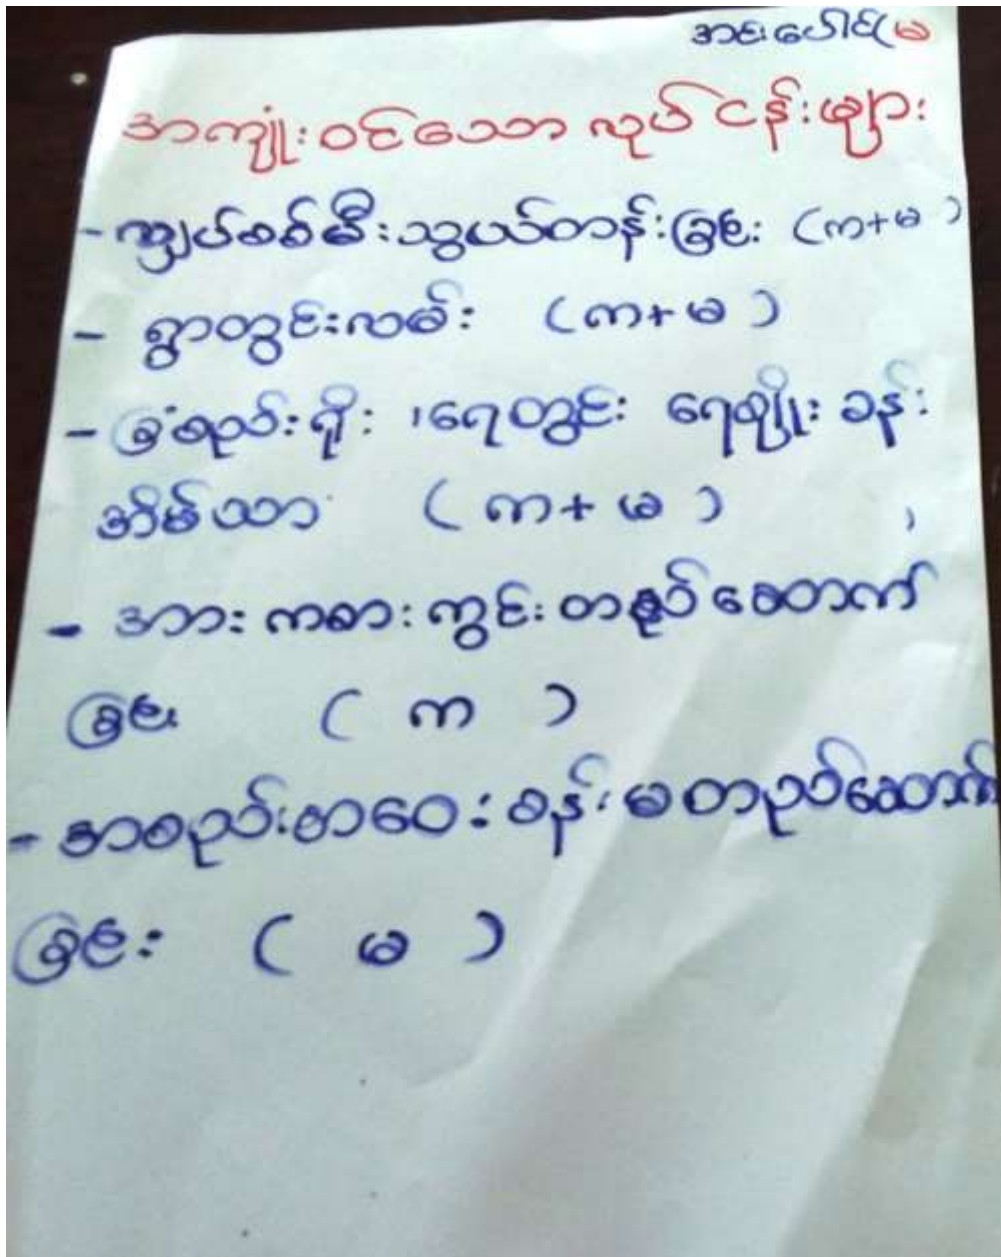 အင်းပေါင်(မ
အကျုံးဝင်သောလုပ်ငန်းများ
- လျှပ်စစ်မီးသွယ်တန်းခြင်း (က+မ)
- ရွာတွင်းလမ်း (က+မ)
- ခြံစည်းရိုး ၊ရေတွင်း ရေချိုးခန်း
အိမ်သာ (က+မ)
- အားကစားကွင်းတခုပ်ဆောက်
ခြင်း (က)
- အစည်းအဝေးခန်းမတည်ဆောက်
ခြင်း (မ)